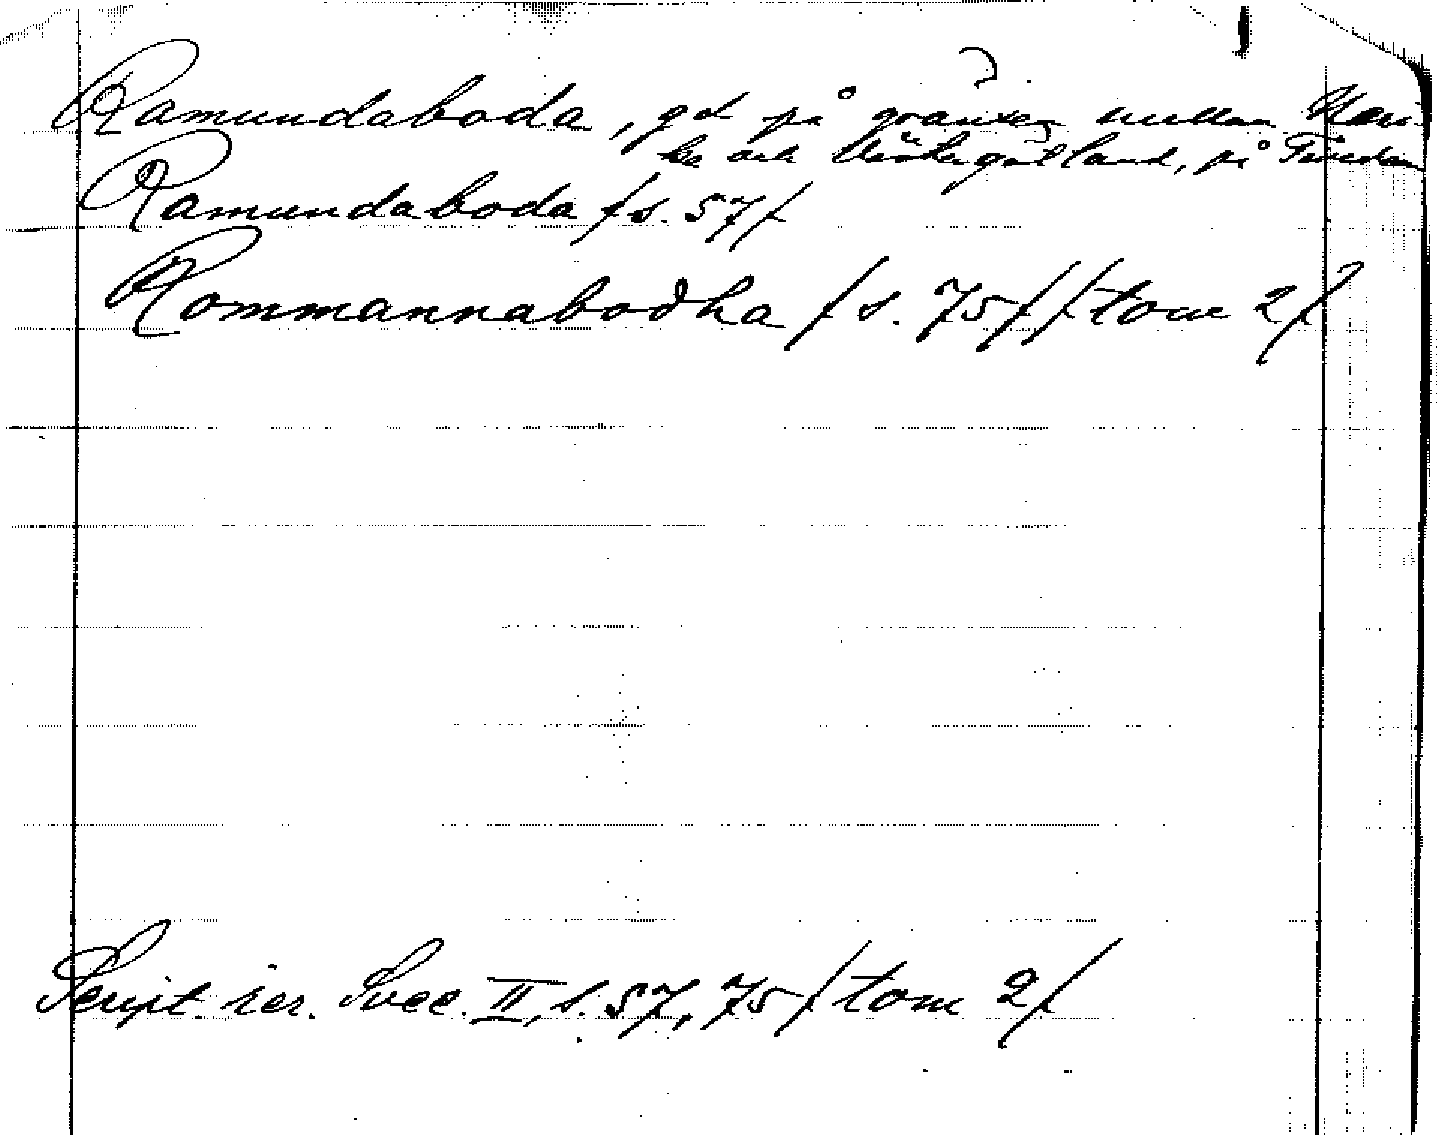 Ramundaboda, gd på gränsen mellan När-
ke och Västergötland, på Tiveden
Ramundaboda /s. 57/
Rommannabodha /s. 75/ /tom 2/
Script. rer. Svec. II, s. 57, 75 /tom 2/